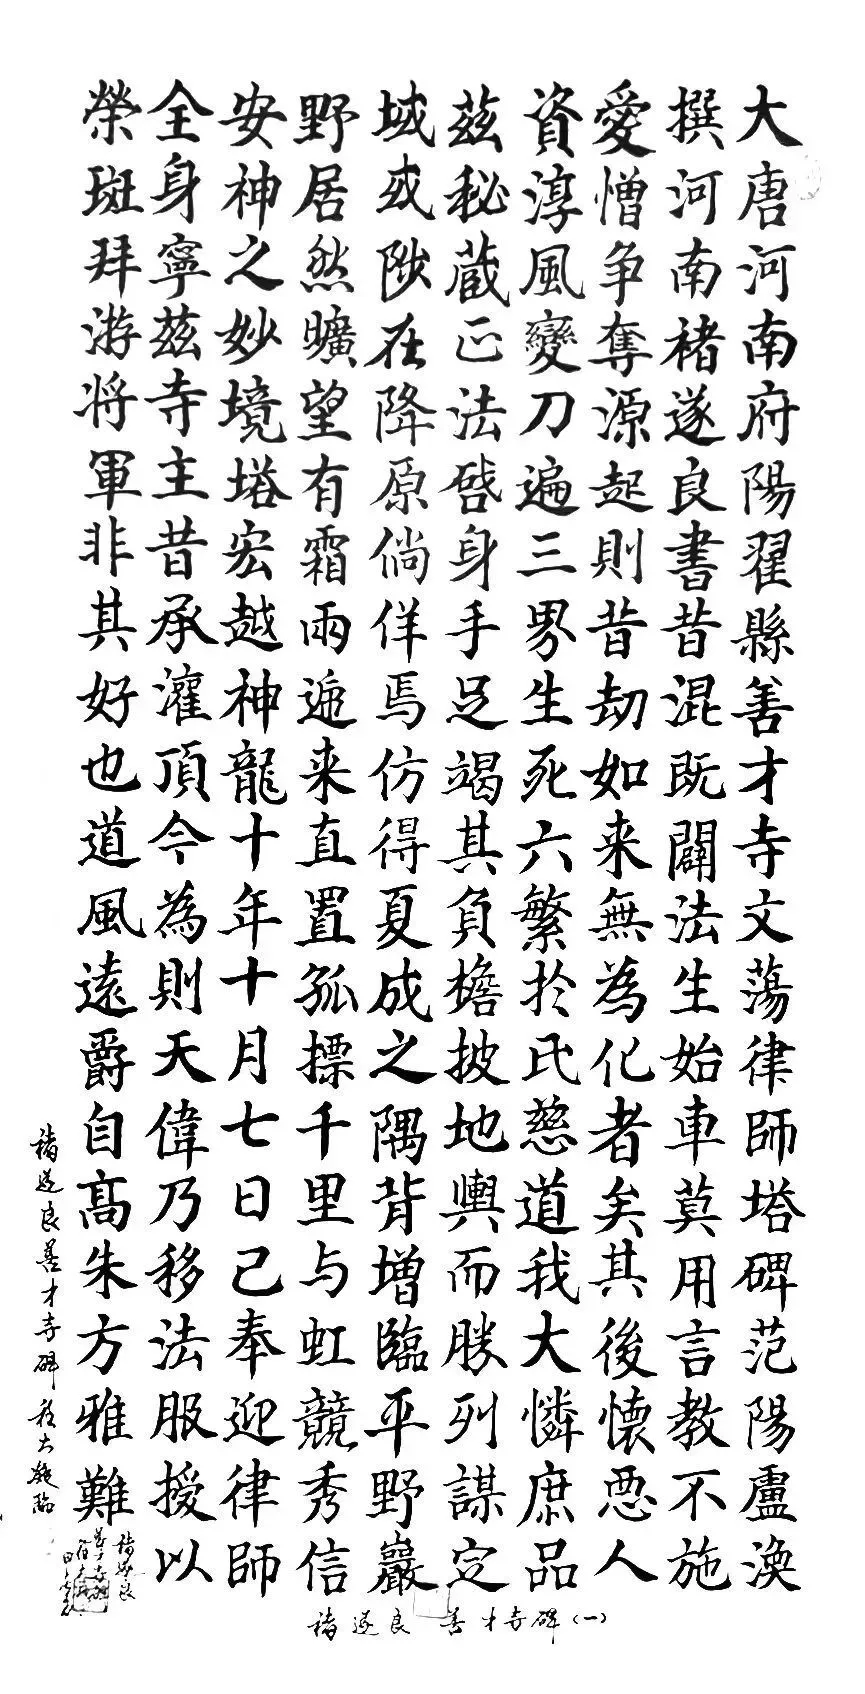 大唐河南府陽翟縣善才寺文蕩律師塔碑范陽盧渙
撰河南褚遂良書昔混既闢法生始車莫用言教不施
愛憎争奪源起則昔劫如来無為化者矣其後懷惡人
資淳風變刀遍三界生死六繁於氏慈道我大憐庶品
茲秘蔵正法啓身手足竭其負檐披地輿而勝列謀定
域或陟在降原倘佯焉仿得夏成之隅背增臨平野巖
野居然曠望有霜雨遞来直置孤摽千里与虹競秀信
安神之妙境塔宏越神龍十年十月七日己奉迎律師
全身寧茲寺主昔承灌頂今為則天偉乃移法服授以
榮班拜游将軍非其好也道風遠爵自高朱方雅難
褚遂良善才寺碑
褚遂良 善才寺碑(一)